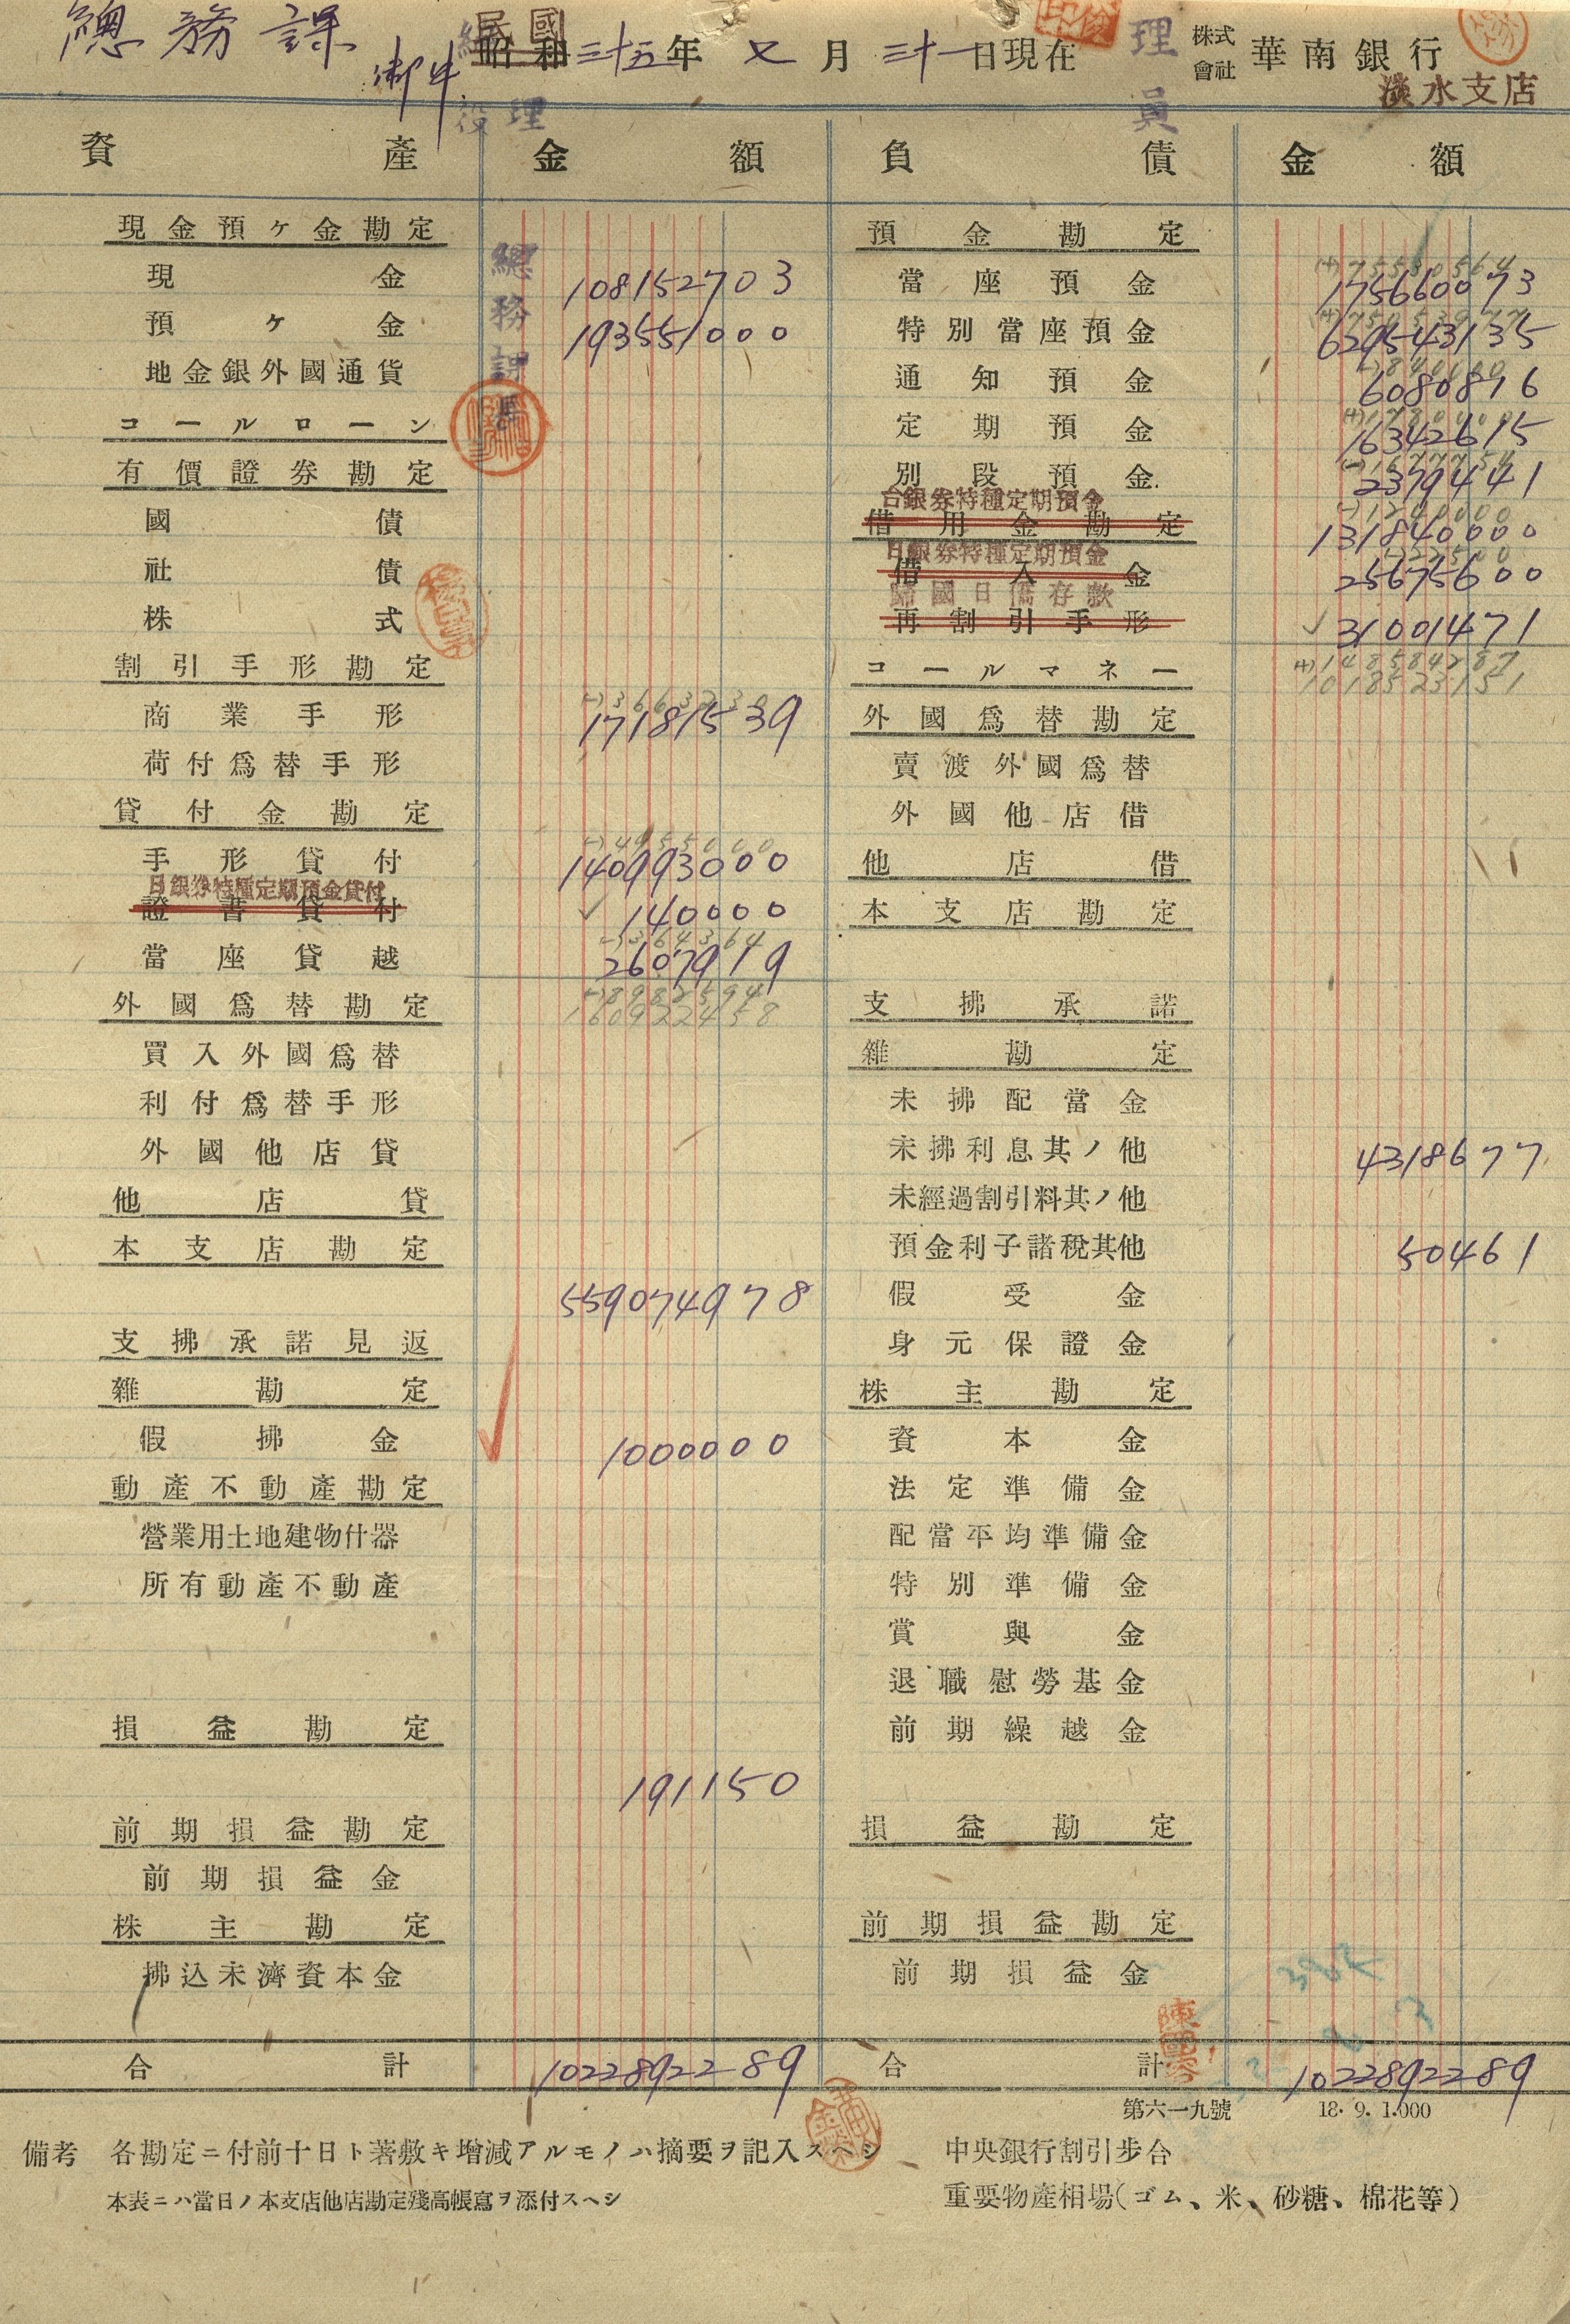 總務課 御中
民國
昭和三十五年 又月 三十一日現在
株式會社 華南銀行
淡水支店
總經理
理員
資產 金額 負債 金額
總務課長
現金預ケ金勘定
現金 108152703
預ケ金 193551000
地金銀外國通貨
コールローン
有價證券勘定
國債
社債
株式
割引手形勘定
(-)3663230
商業手形 17181539
荷付爲替手形
貸付金勘定
(-)4955000
手形貸付 140993000
日銀券特種定期預金貸付
證書貸付 140000
(-)364364
當座貸越 2607919
(-)8982594
外國爲替勘定 160922458
買入外國爲替
利付爲替手形
外國他店貸
他店貸
本支店勘定
559074978
支拂承諾見返
雜勘定
假拂金 1000000
動產不動產勘定
營業用土地建物什器
所有動產不動產
損益勘定
191150
前期損益勘定
前期損益金
株主勘定
拂込未濟資本金
合計 1022892289
預金勘定
當座預金 175660073
特別當座預金 629543135
(-)840000
通知預金 6080876
定期預金 16342615
別段預金 2379441
台銀券特種定期預金
(-)1240000
借用金勘定 131840000
日銀券特種定期預金
借入金 25675600
歸國日僑存款
再割引手形 31001471
コールマネー (+)148584287
1018523151
外國爲替勘定
賣渡外國爲替
外國他店借
他店借
本支店勘定
支拂承諾
雜勘定
未拂配當金
未拂利息其ノ他 4318677
未經過割引料其ノ他
預金利子諸稅其他 50461
假受金
身元保證金
株主勘定
資本金
法定準備金
配當平均準備金
特別準備金
賞與金
退職慰勞基金
前期繰越金
損益勘定
前期損益勘定
前期損益金
合計 1022892289
第六一九號 18.9.1.000
備考 各勘定ニ付前十日ト著敷キ增減アルモノハ摘要ヲ記入スヘシ
本表ニハ當日ノ本支店他店勘定殘高帳寫ヲ添付スヘシ
中央銀行割引步合
重要物產相場(ゴム、米、砂糖、棉花等)